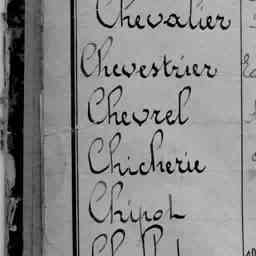 Chevalier
Chevestrier
Chevrel
Chicherie
Chipot